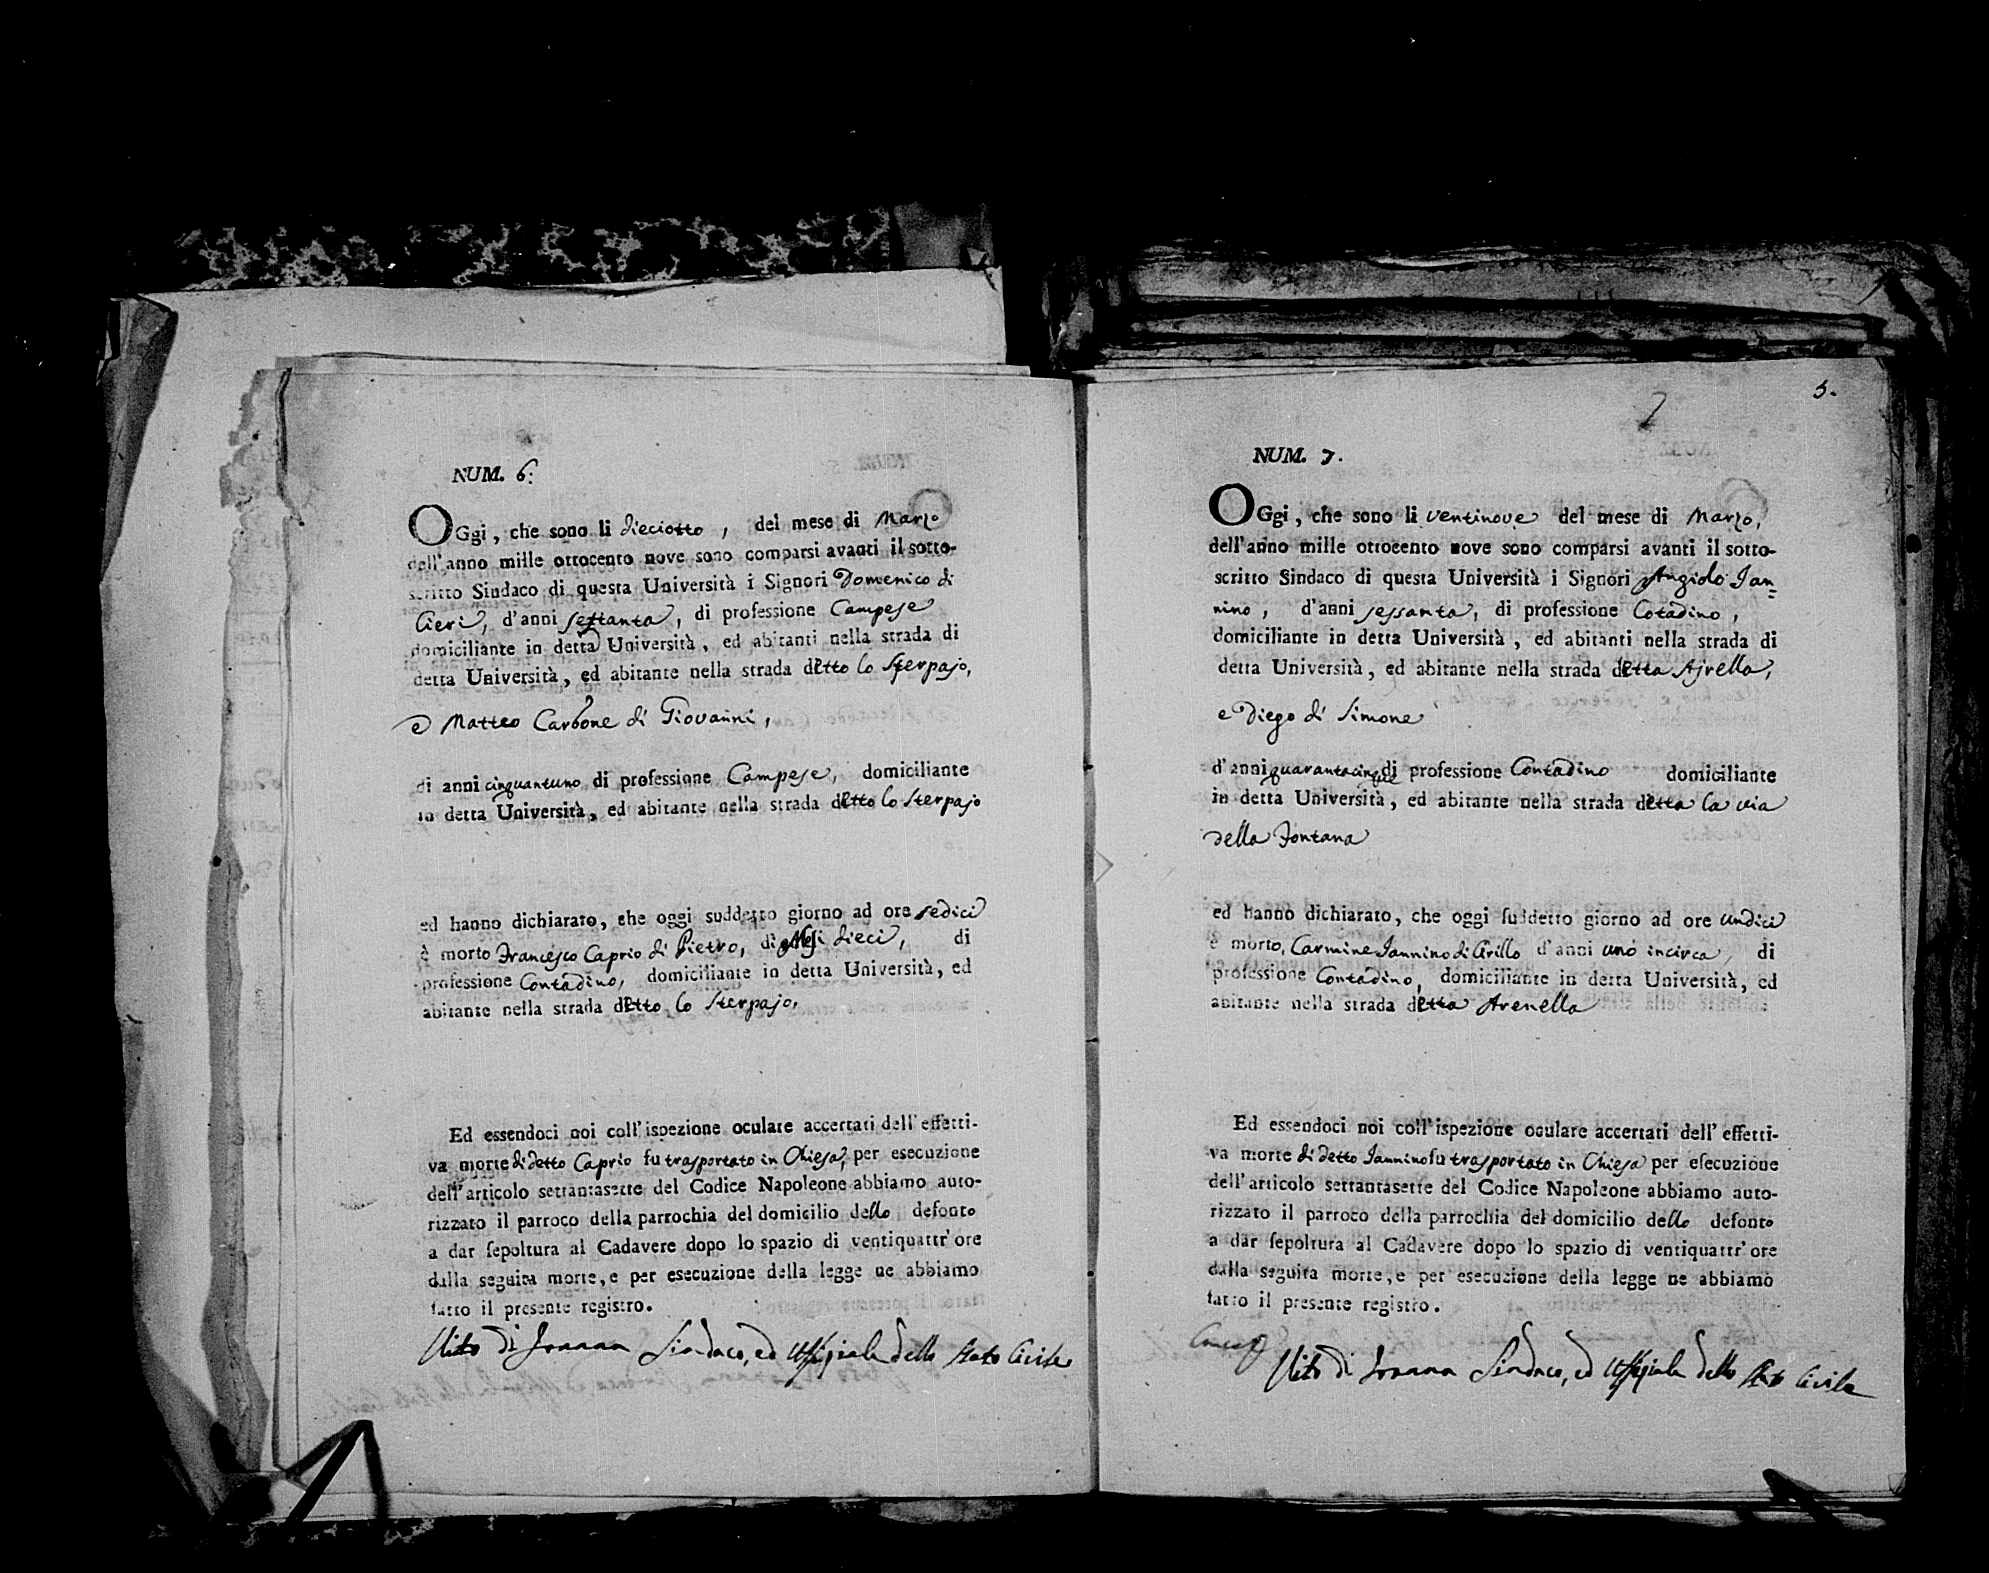 NUM. 6.
OGgi, che sono li dieciotto, del mese di Marzo
dell'anno mille ottocento nove sono comparsi avanti il sotto-
scritto Sindaco di questa Università i Signori Domenico di
Cieri, d'anni settanta, di professione Campese
domiciliante in detta Università, ed abitanti nella strada di
detta Università, ed abitante nella strada detto lo Sterpajo,
e Matteo Carbone di Giovanni,
di anni cinquantuno di professione Campese, domiciliante
in detta Università, ed abitante nella strada detto lo Sterpajo
ed hanno dichiarato, che oggi suddetto giorno ad ore sedici
è morto Francesco Caprio di Pietro, di Mesi dieci, di
professione Contadino, domiciliante in detta Università, ed
abitante nella strada detto lo Sterpajo,
Ed essendoci noi coll'ispezione oculare accertati dell'effetti-
va morte di detto Caprio fu trasportato in Chiesa, per esecuzione
dell'articolo settantasette del Codice Napoleone abbiamo auto-
rizzato il parroco della parrochia del domicilio dello defonto
a dar sepoltura al Cadavere dopo lo spazio di ventiquattr'ore
dalla seguita morte, e per esecuzione della legge ne abbiamo
fatto il presente registro.
Vito di Ioanna Sindaco, ed Uffiziale dello Stato Civile
5.
7
NUM. 7.
OGgi, che sono li ventinove del mese di Marzo,
dell'anno mille ottocento nove sono comparsi avanti il sotto-
scritto Sindaco di questa Università i Signori Angiolo Ian=
nino, d'anni sessanta, di professione Cotadino,
domiciliante in detta Università, ed abitanti nella strada di
detta Università, ed abitante nella strada detta Ajrella,
e Diego di Simone
d'anni quarantacinque di professione Contadino domiciliante
in detta Università, ed abitante nella strada detta la via
della Fontana
ed hanno dichiarato, che oggi suddetto giorno ad ore undici
è morto, Carmine Iannino di Cirillo d'anni uno incirca, di
professione Contadino, domiciliante in detta Università, ed
abitante nella strada detta Arenella
Ed essendoci noi coll'ispezione oculare accertati dell'effetti-
va morte di detto Iannino fu trasportato in Chiesa per esecuzione
dell'articolo settantasette del Codice Napoleone abbiamo auto-
rizzato il parroco della parrochia del domicilio dello defonto
a dar sepoltura al Cadavere dopo lo spazio di ventiquattr'ore
dalla seguita morte, e per esecuzione della legge ne abbiamo
fatto il presente registro.
Vito di Ioanna Sindaco, ed Uffiziale dello Stato Civile